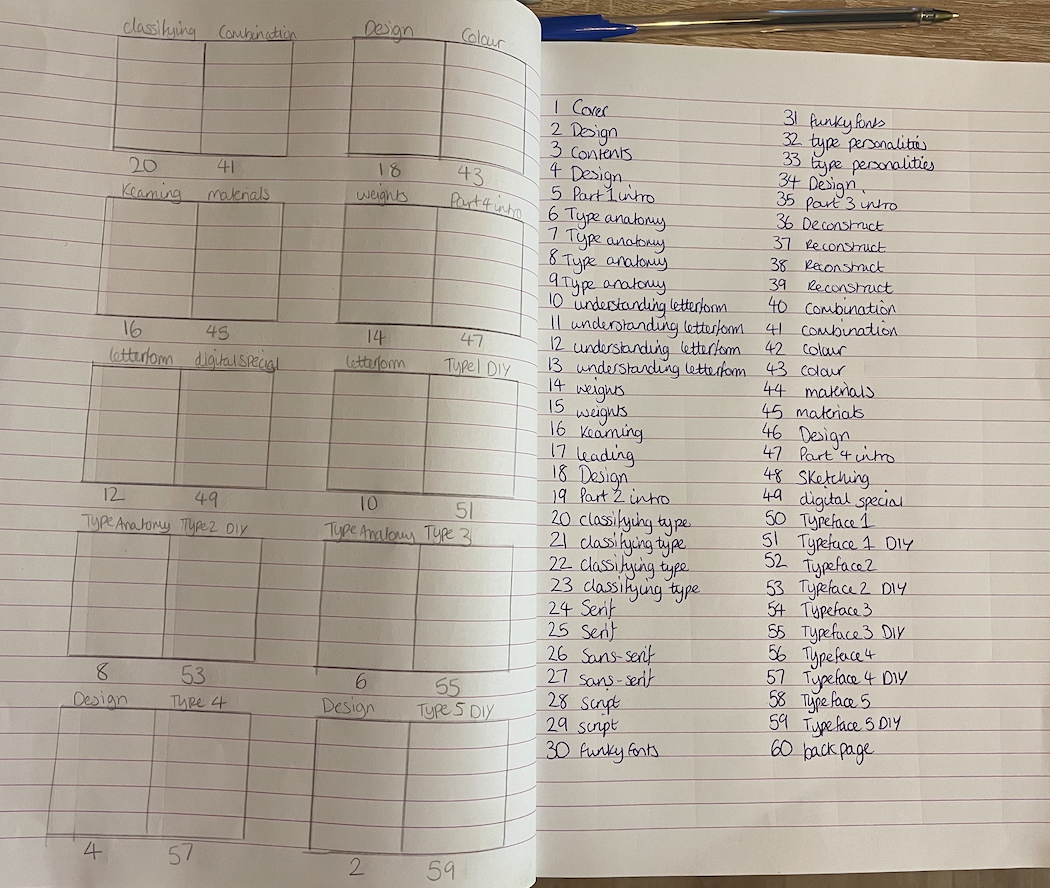 classifying Combination Design Colour
20 41 18 43
Kearning materials weights Part 4 intro
16 45 14 47
letterform digital special letterform Type 1 DIY
12 49 10 51
Type Anatomy Type 2 DIY Type Anatomy Type 3
8 53 6 55
Design Type 4 Design Type 5 DIY
4 57 2 59
1 Cover
2 Design
3 Contents
4 Design
5 Part 1 intro
6 Type anatomy
7 Type anatomy
8 Type anatomy
9 Type anatomy
10 understanding letterform
11 understanding letterform
12 understanding letterform
13 understanding letterform
14 weights
15 weights
16 Kearning
17 leading
18 Design
19 Part 2 intro
20 classifying type
21 classifying type
22 classifying type
23 classifying type
24 Serif
25 Serif
26 Sans-serif
27 Sans-serif
28 script
29 script
30 funky fonts
31 funky fonts
32 type personalities
33 type personalities
34 Design
35 Part 3 intro
36 Deconstruct
37 Reconstruct
38 Reconstruct
39 Reconstruct
40 combination
41 combination
42 colour
43 colour
44 materials
45 materials
46 Design
47 Part 4 intro
48 Sketching
49 digital special
50 Typeface 1
51 Typeface 1 DIY
52 Typeface 2
53 Typeface 2 DIY
54 Typeface 3
55 Typeface 3 DIY
56 Typeface 4
57 Typeface 4 DIY
58 Typeface 5
59 Typeface 5 DIY
60 back page